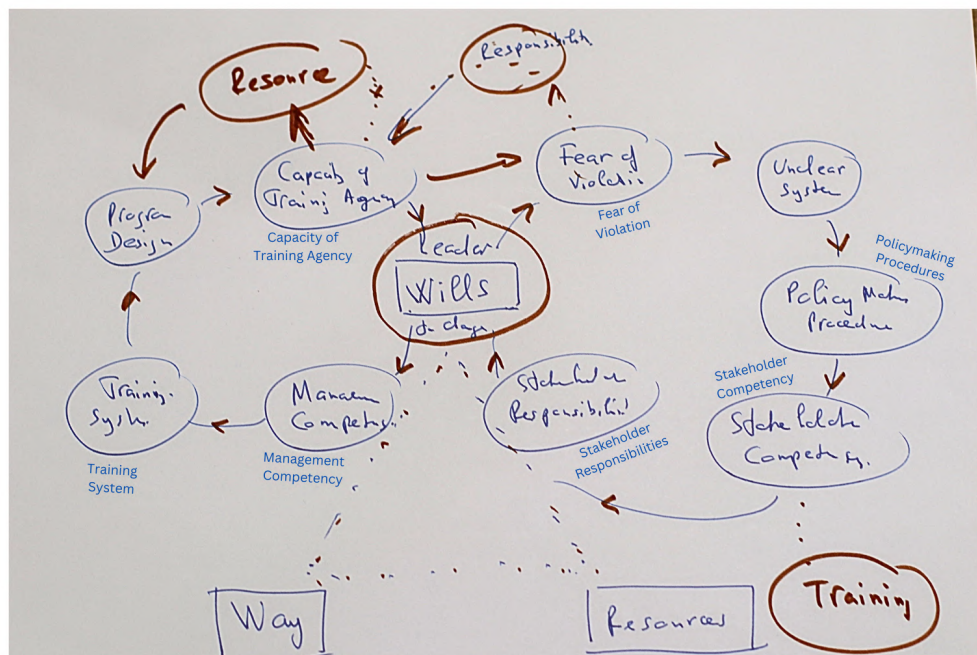 Resource
Responsibilit
Capacity of
Training Agency
Capacity of
Training Agency
Fear of
Violatii
Fear of
Violation
Unclear
System
Program
Design
Leader
Wills
Policymaking
Procedures
Policy Makin
Procedure
Training
System
Training
System
Managem
Competen
Management
Competency
Stakeholder
Responsibiliti
Stakeholder
Responsibilities
Stakeholder
Competency
Stakeholder
Competency
Way
Resources
Training